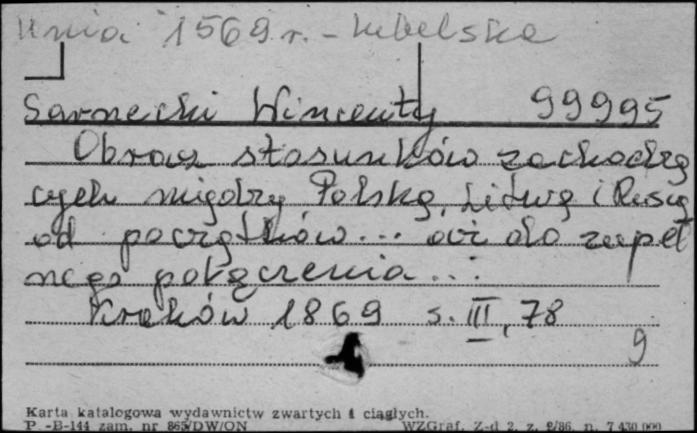 Unia 1569 r. - Lubelska
Sarnecki Wincenty 99995
Obraz stosunków zachodzą
cych między Polską, Litwą i Rusią
od początków... aż do zupeł
nego połączenia...
Kraków 1869 s. III, 78
9
Karta katalogowa wydawnictw zwartych i ciągłych.
P.-B-144 zam. nr 865/DW/ON WZGraf. Z-d 2, z. 2/86, n. 7 430 000